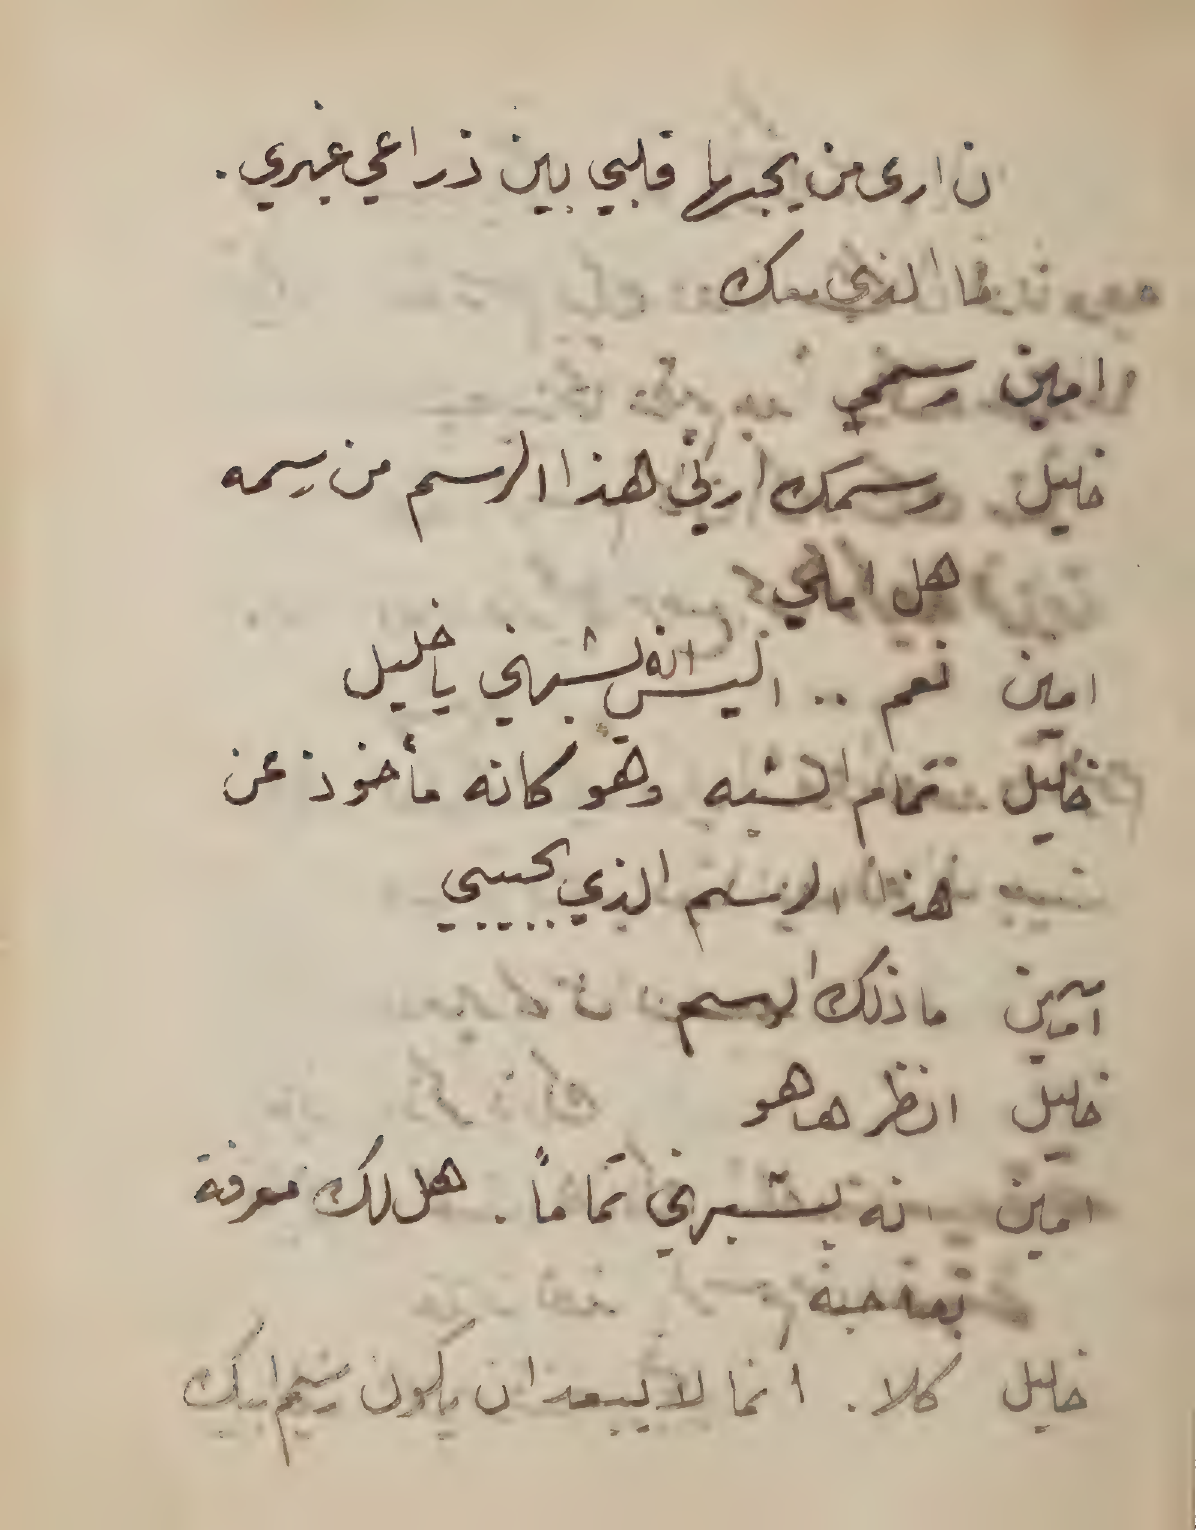 ن ارى من يحبها قلبي بين ذراعي غيري .
ما الذي معك
امين رسمي
خليل رسمك ارني هذا الرسم من رسمه
هل املي ؟
امين نعم .. اليس انه يشبهني يا خليل
خليل تمام الشبه وهو كانه مأخوذ عن
هذا الرسم الذي بحبيبي . . . . .
امين ما ذلك الرسم
خليل انظر ها هو
امين انه يشبهني تماماً . هل لك معرفة
بصاحبه
خليل كلا . انما لا يبعد ان يكون رسم ابيك